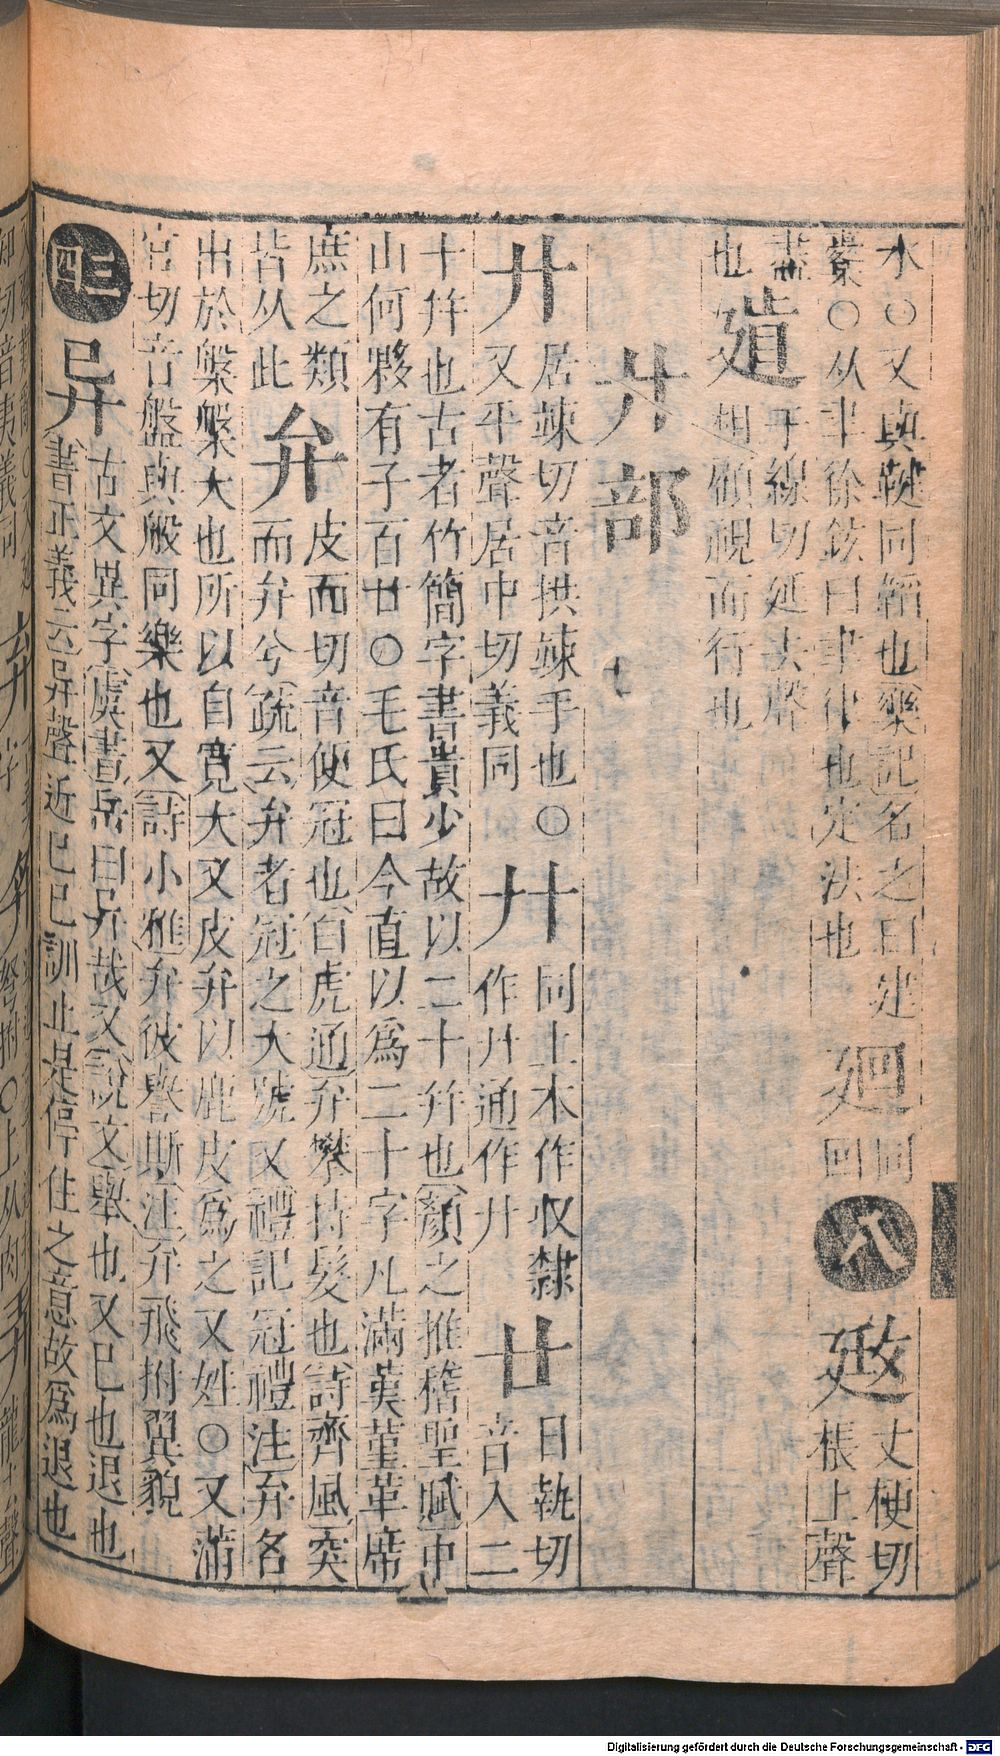 水〇又與鞬同韜也樂記名之曰建 廻同 八 𢌿丈梗切
橐〇从聿徐鉉曰聿律也定法也 回 又棖上聲
盡 𨖷于線切延去聲
也 又相顧視而行也
廾部 七
廾 居竦切音拱竦手也〇 廾 同上本作収隸 廿 日執切
又平聲居中切義同 作廾通作廾 音入二
十幷也古者竹簡字書貴少故以二十幷也顏之推稽聖賦中
山何夥有子百廿〇毛氏曰今直以爲二十字凡滿黃堇革席
庶之類 弁 皮面切音便冠也白虎通弁攀持髮也詩齊風突
皆从此 而弁兮疏云弁者冠之大號又禮記冠禮注弁名
出於槃槃大也所以自寬大又皮弁以鹿皮爲之又姓〇又蒲
官切音盤與般同樂也又詩小雅弁彼鸒斯注弁飛拊翼貌
三四 异 古文異字虞書岳曰异哉又說文舉也又已也退也
書正義云异聲近已已訓止是停住之意故爲退也
Digitalisierung gefördert durch die Deutsche Forschungsgemeinschaft - DFG